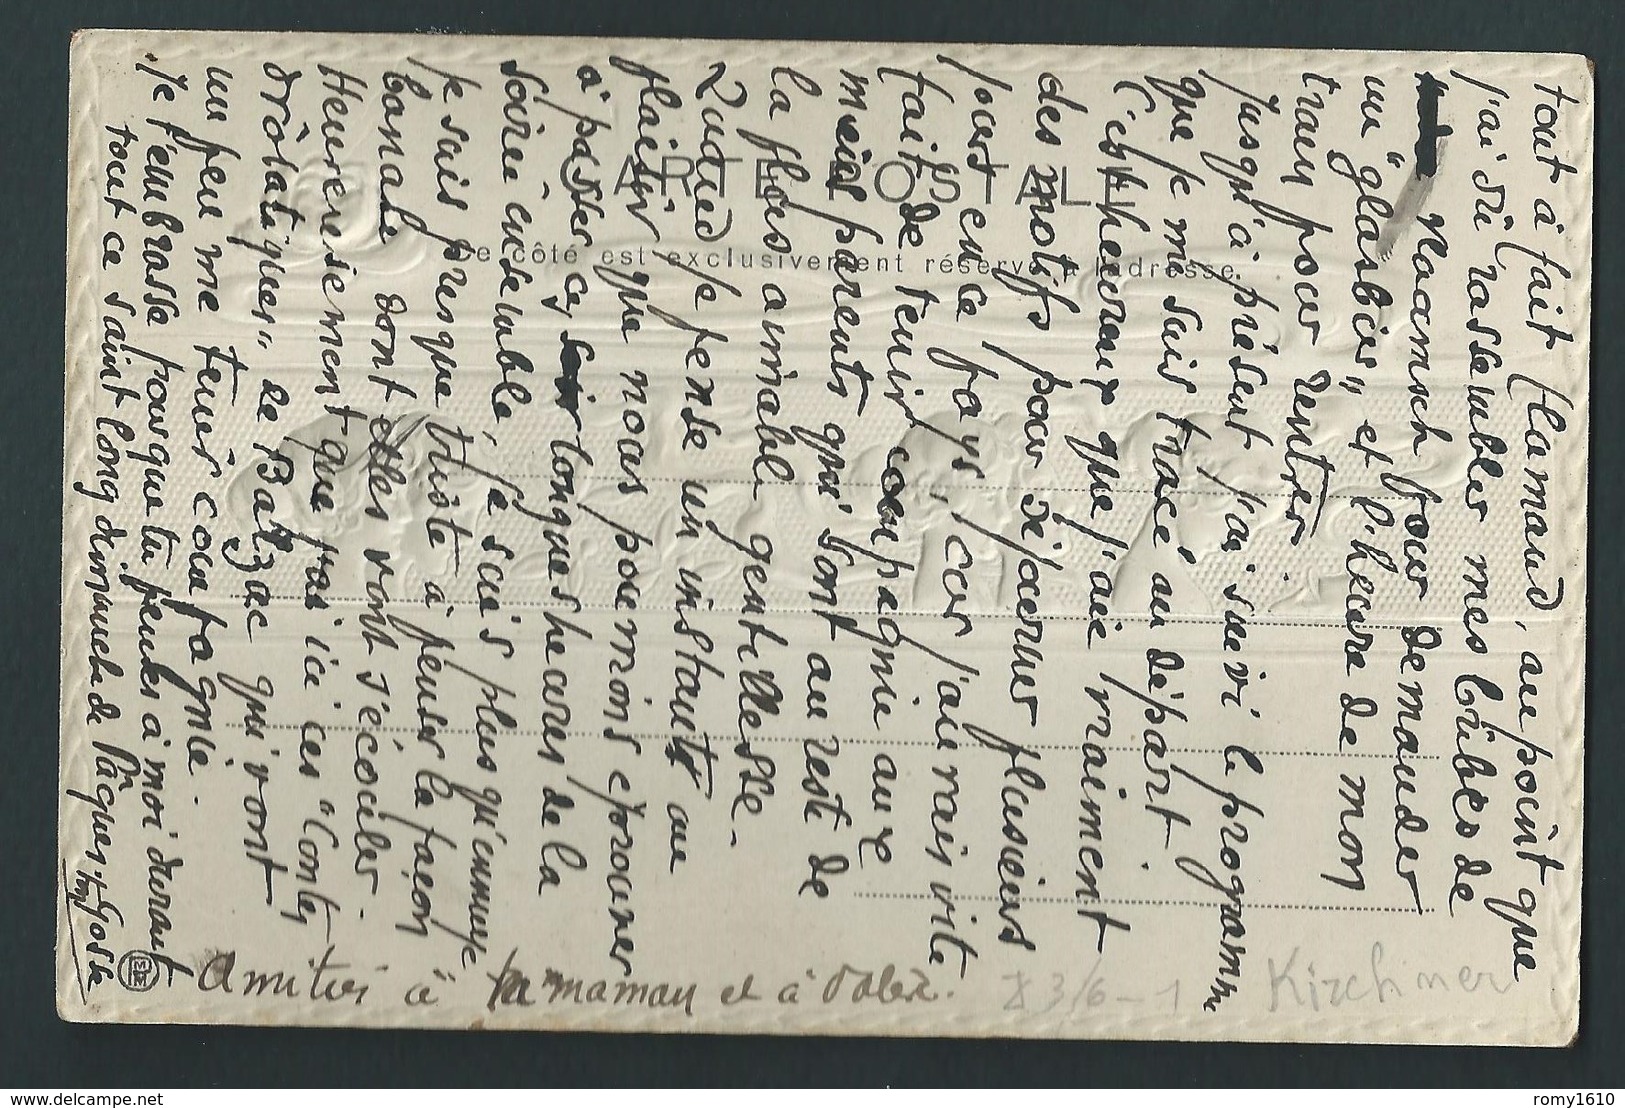 tout à fait flamand, au point que
j'ai dû rassembler mes bribes de
Vlaamsch pour demander
un "glasbier" et l'heure de mon
train pour rentrer
Jusqu'à présent j'ai suivi le programme
que je me suis tracé au départ
C'est heureux que j'aie vraiment
des motifs pour m'excuser plusieurs
jours en ce pays, car j'aurais vite
fait de tenir compagnie aux
mères parents qui sont au reste de
la plus aimable gentillesse.
Quand je pense un instant au
plaisir que nous pourrions éprouver
à passer ces longues heures de la
soirée ensemble, je suis plus qu'ennuyé
je suis presque triste à penser la façon
banale dont elles vont s'écouler.
Heureusement que j'ai ici ces "Contes
drôlatiques" de Balzac qui vont
un peu me tenir compagnie.
Je t'embrasse pour que tu penses à moi durant
tout ce saint long dimanche de Pâques. Gosse
Amitiés à ta maman et à
CARTE POSTALE
Ce côté est exclusivement réservé à l'adresse.
Z 3/6 - 1
Kirchner
romy1610
www.delcampe.net